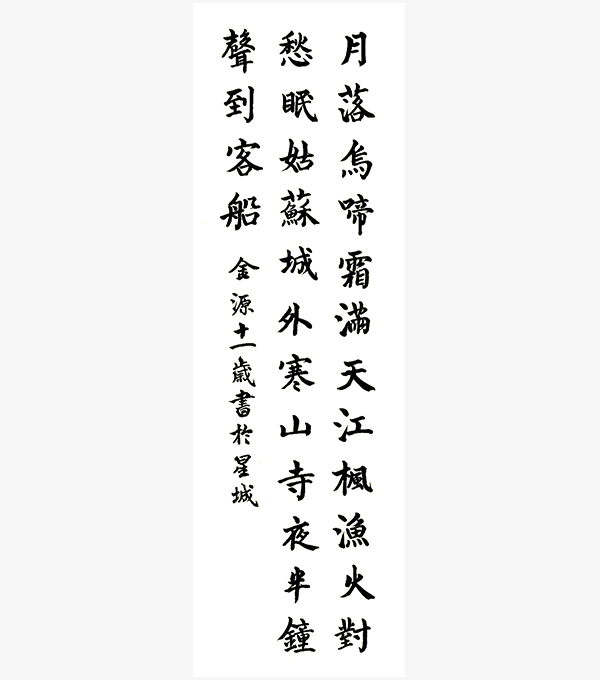 月落烏啼霜滿天江楓漁火對
愁眠姑蘇城外寒山寺夜半鐘
聲到客船
金源十一歲書於星城